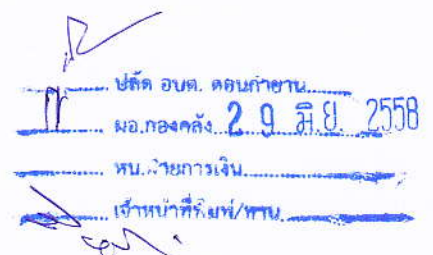 ปลัด อบต. ดอนกำยาน
ผอ.กองคลัง 29 มิ.ย. 2558
หน.ฝ่ายการเงิน
เจ้าหน้าที่พิมพ์/ทาน